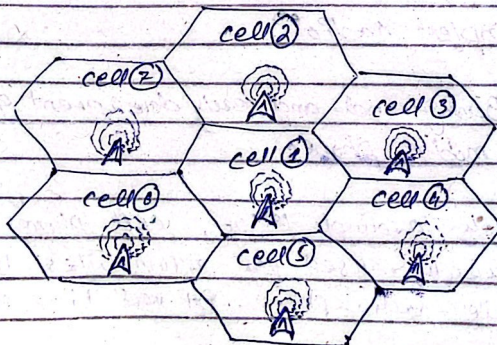 cell ②
cell ⑦
cell ③
cell ①
cell ⑥
cell ④
cell ⑤